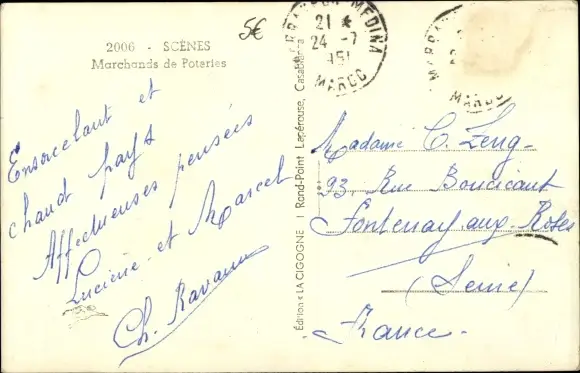 2006 - SCÈNES
Marchands de Poteries
5€
MARRAKECH-MEDINA
21 *
24 -7
1951
MAROC
MAROC
Ensorcelant et
chaud pays
Affectueuses pensées
Lucienne et Marcel
Ch.
Édition « LA CIGOGNE » 1 Rond-Point Lapérouse, Casablanca
Madame C. Zeng
23, Rue Boucicaut
Fontenay aux Roses
(Seine)
France